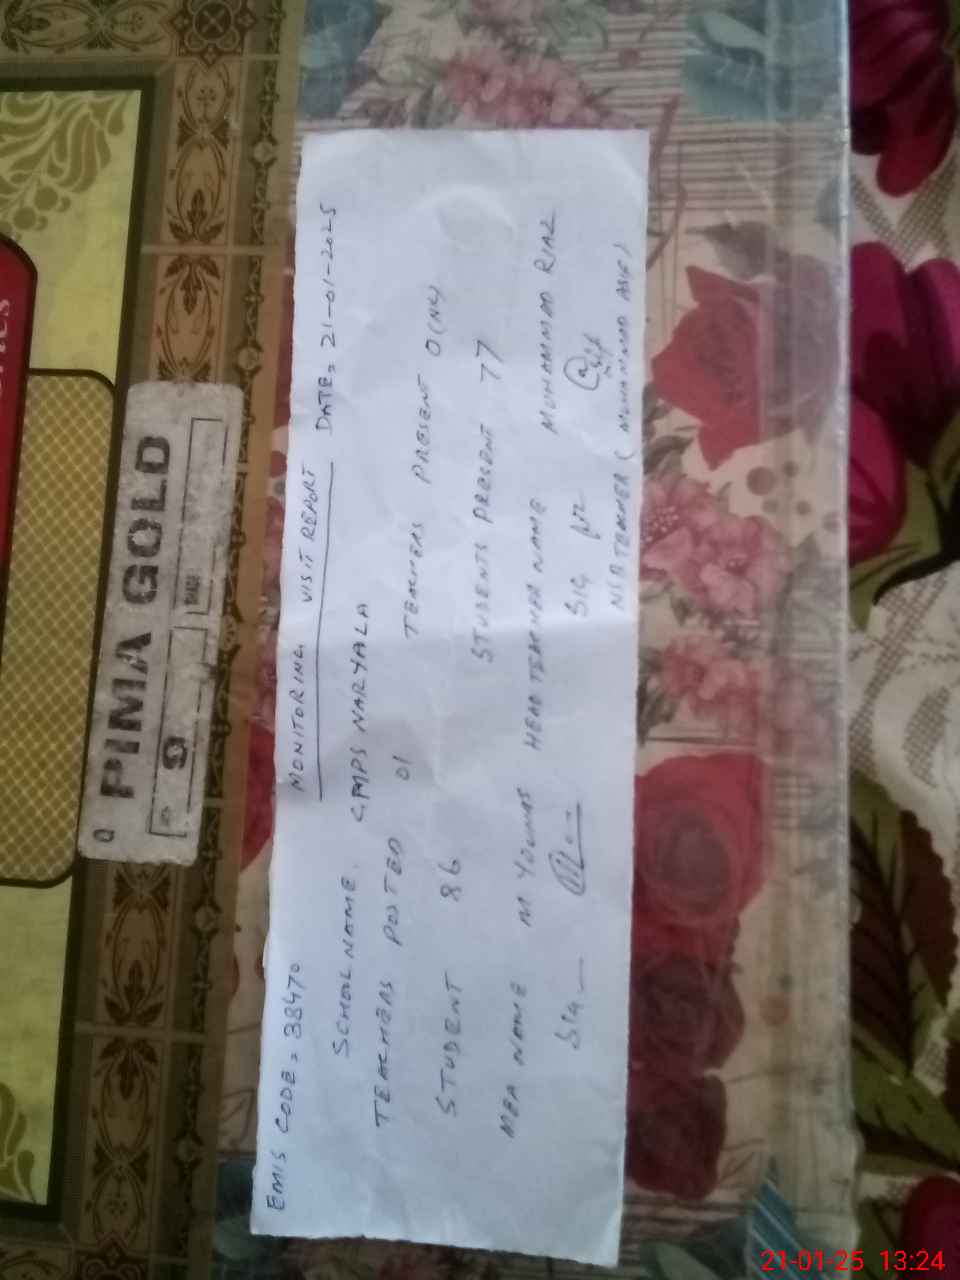 EMIS CODE = 38470
MONITORING VISIT REPORT DATE = 21-01-2025
SCHOOL NAME. GMPS NARYALA
TEACHERS POSTED 01 TEACHERS PRESENT
STUDENT 86 STUDENTS PRESENT 77
MEA NAME M YOUNAS HEAD TEACHER NAME MUHAMMAD RIAZ
SIG SIG
TEACHER ( MUHAMMAD ASIF)
PIMA GOLD
21-01-25 13:24